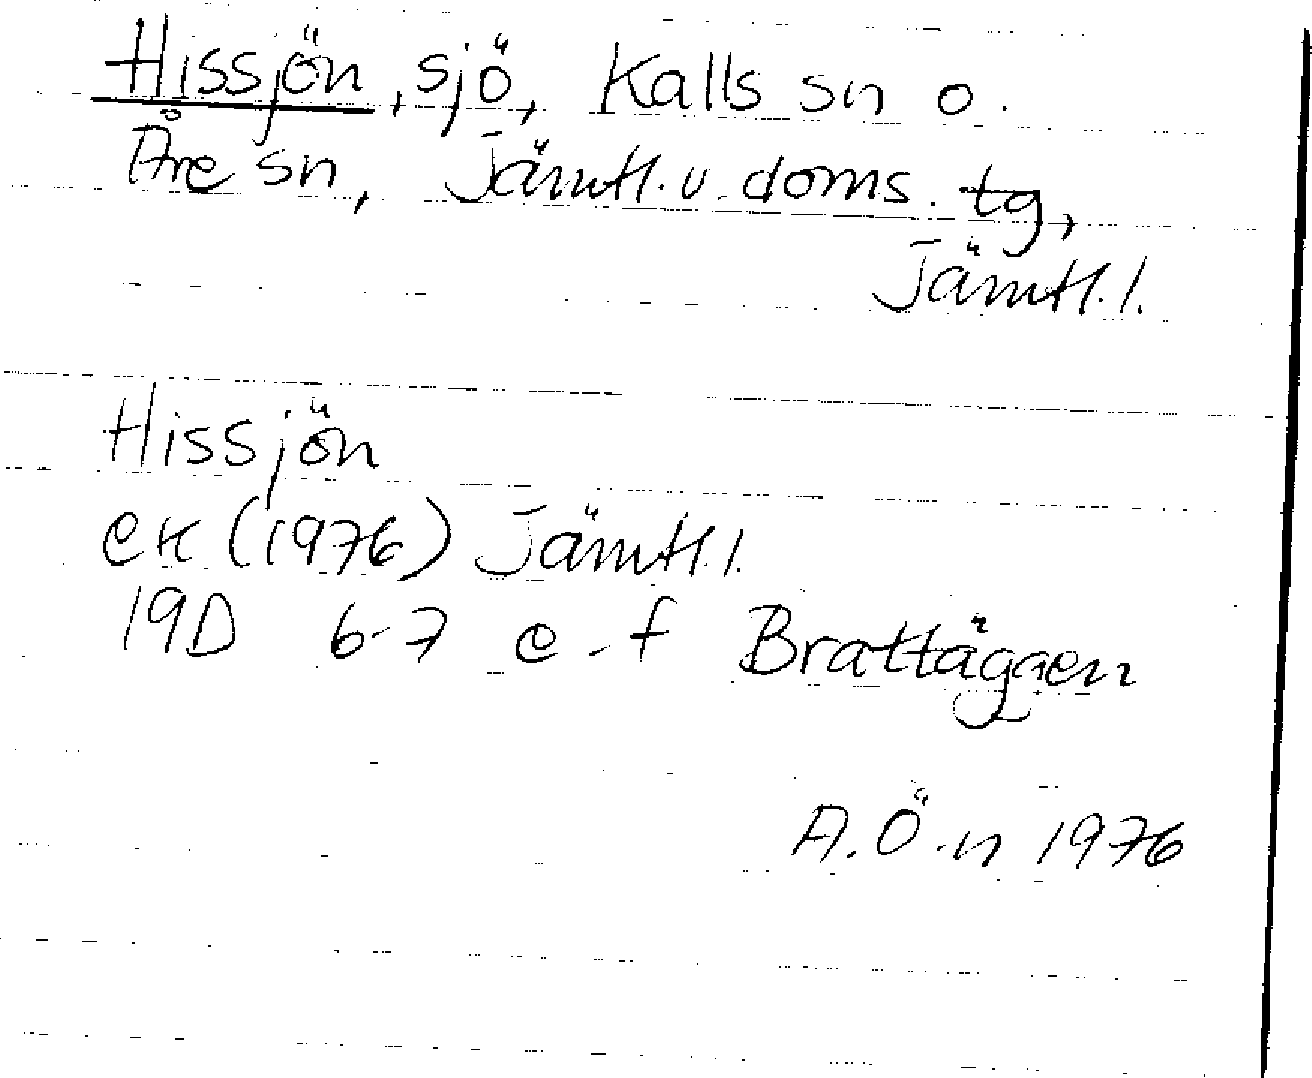 Hissjön, sjö, Kalls sn o.
Åre sn, Jämtl. v. doms. tg,
Jämtl. l.
Hissjön
ek (1976) Jämtl. l.
19D 6-7 e-f Brattäggen
A. Ö-n 1976